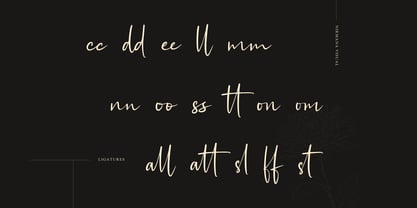 cc dd ee ll mm
nn oo ss tt on om
LIGATURES
all att sl ff st
NIRMANA VISUAL